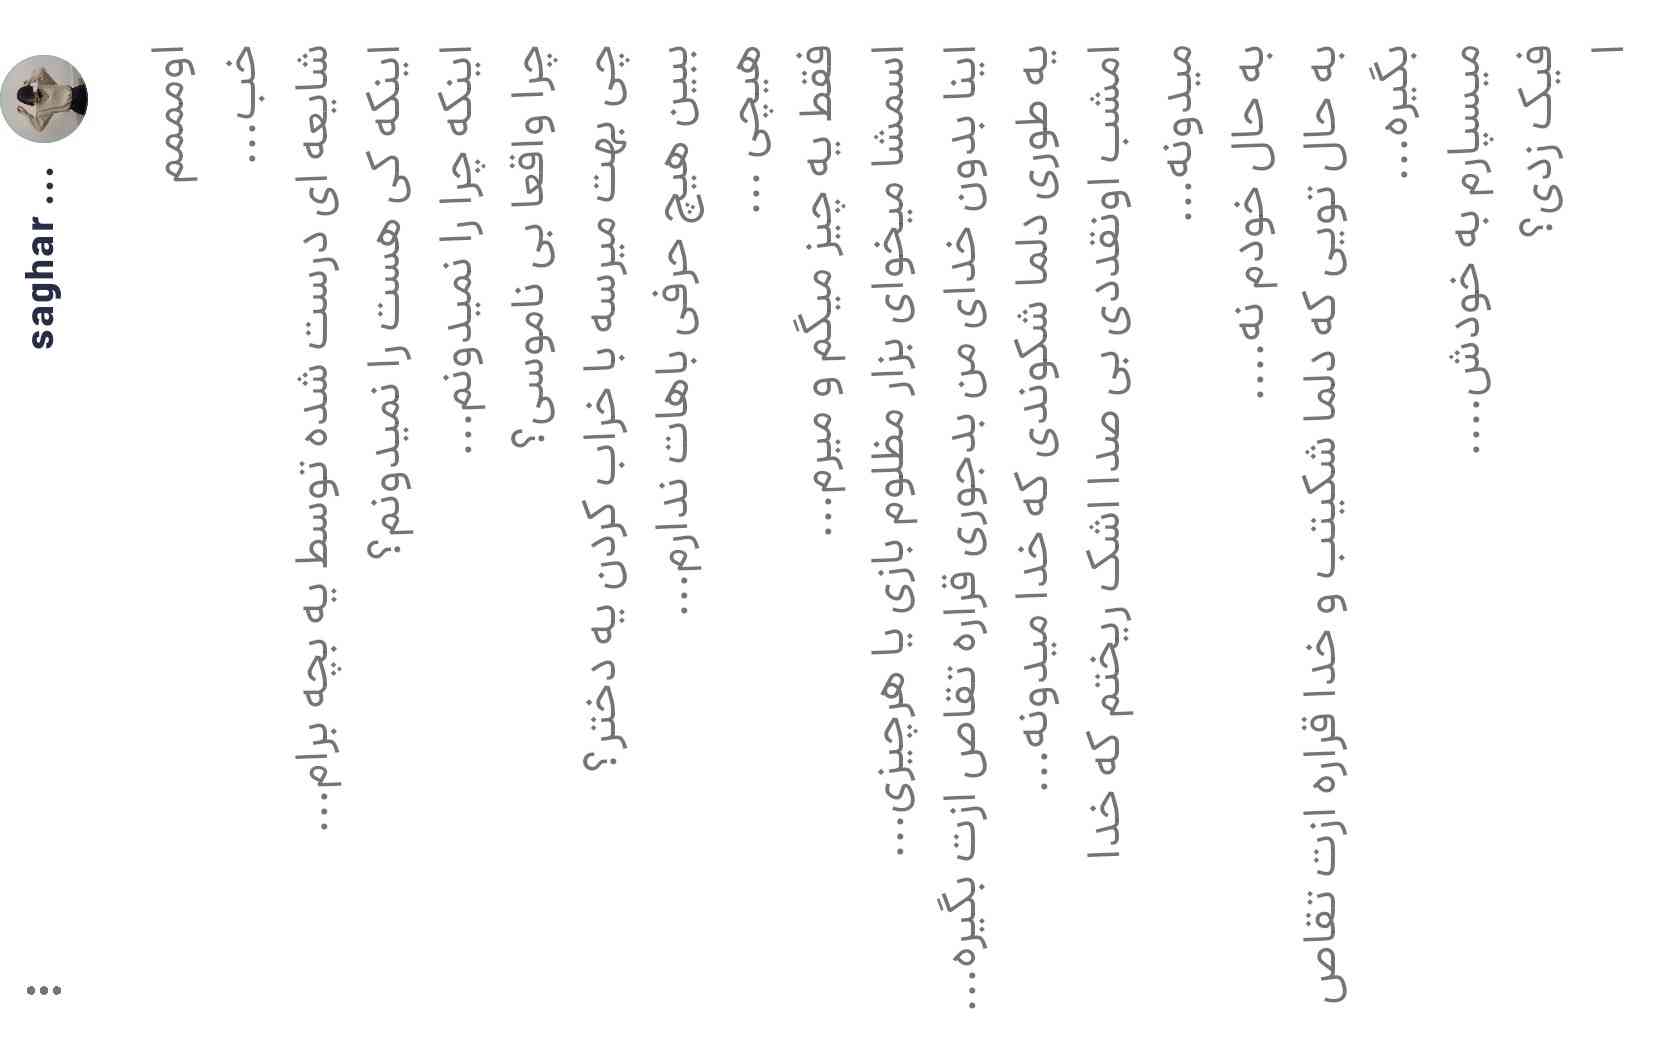 saghar ...
اومممم
خب...
شایعه ای درست شده توسط یه بچه برام...
اینکه کی هست را نمیدونم؟
اینکه چرا را نمیدونم...
چرا واقعا بی ناموسی؟
چی بهت میرسه با خراب کردن یه دختر؟
ببین هیچ حرفی باهات ندارم...
هیچی ...
فقط یه چیز میگم و میرم...
اسمشا میخوای بزار مظلوم بازی یا هرچیزی...
اینا بدون خدای من بدجوری قراره تقاص ازت بگیره...
یه طوری دلما شکوندی که خدا میدونه...
امشب اونقددی بی صدا اشک ریختم که خدا
میدونه...
به حال خودم نه....
به حال تویی که دلما شکیتب و خدا قراره ازت تقاص
بگیره...
میسپارم به خودش....
فیک زدی؟
ا